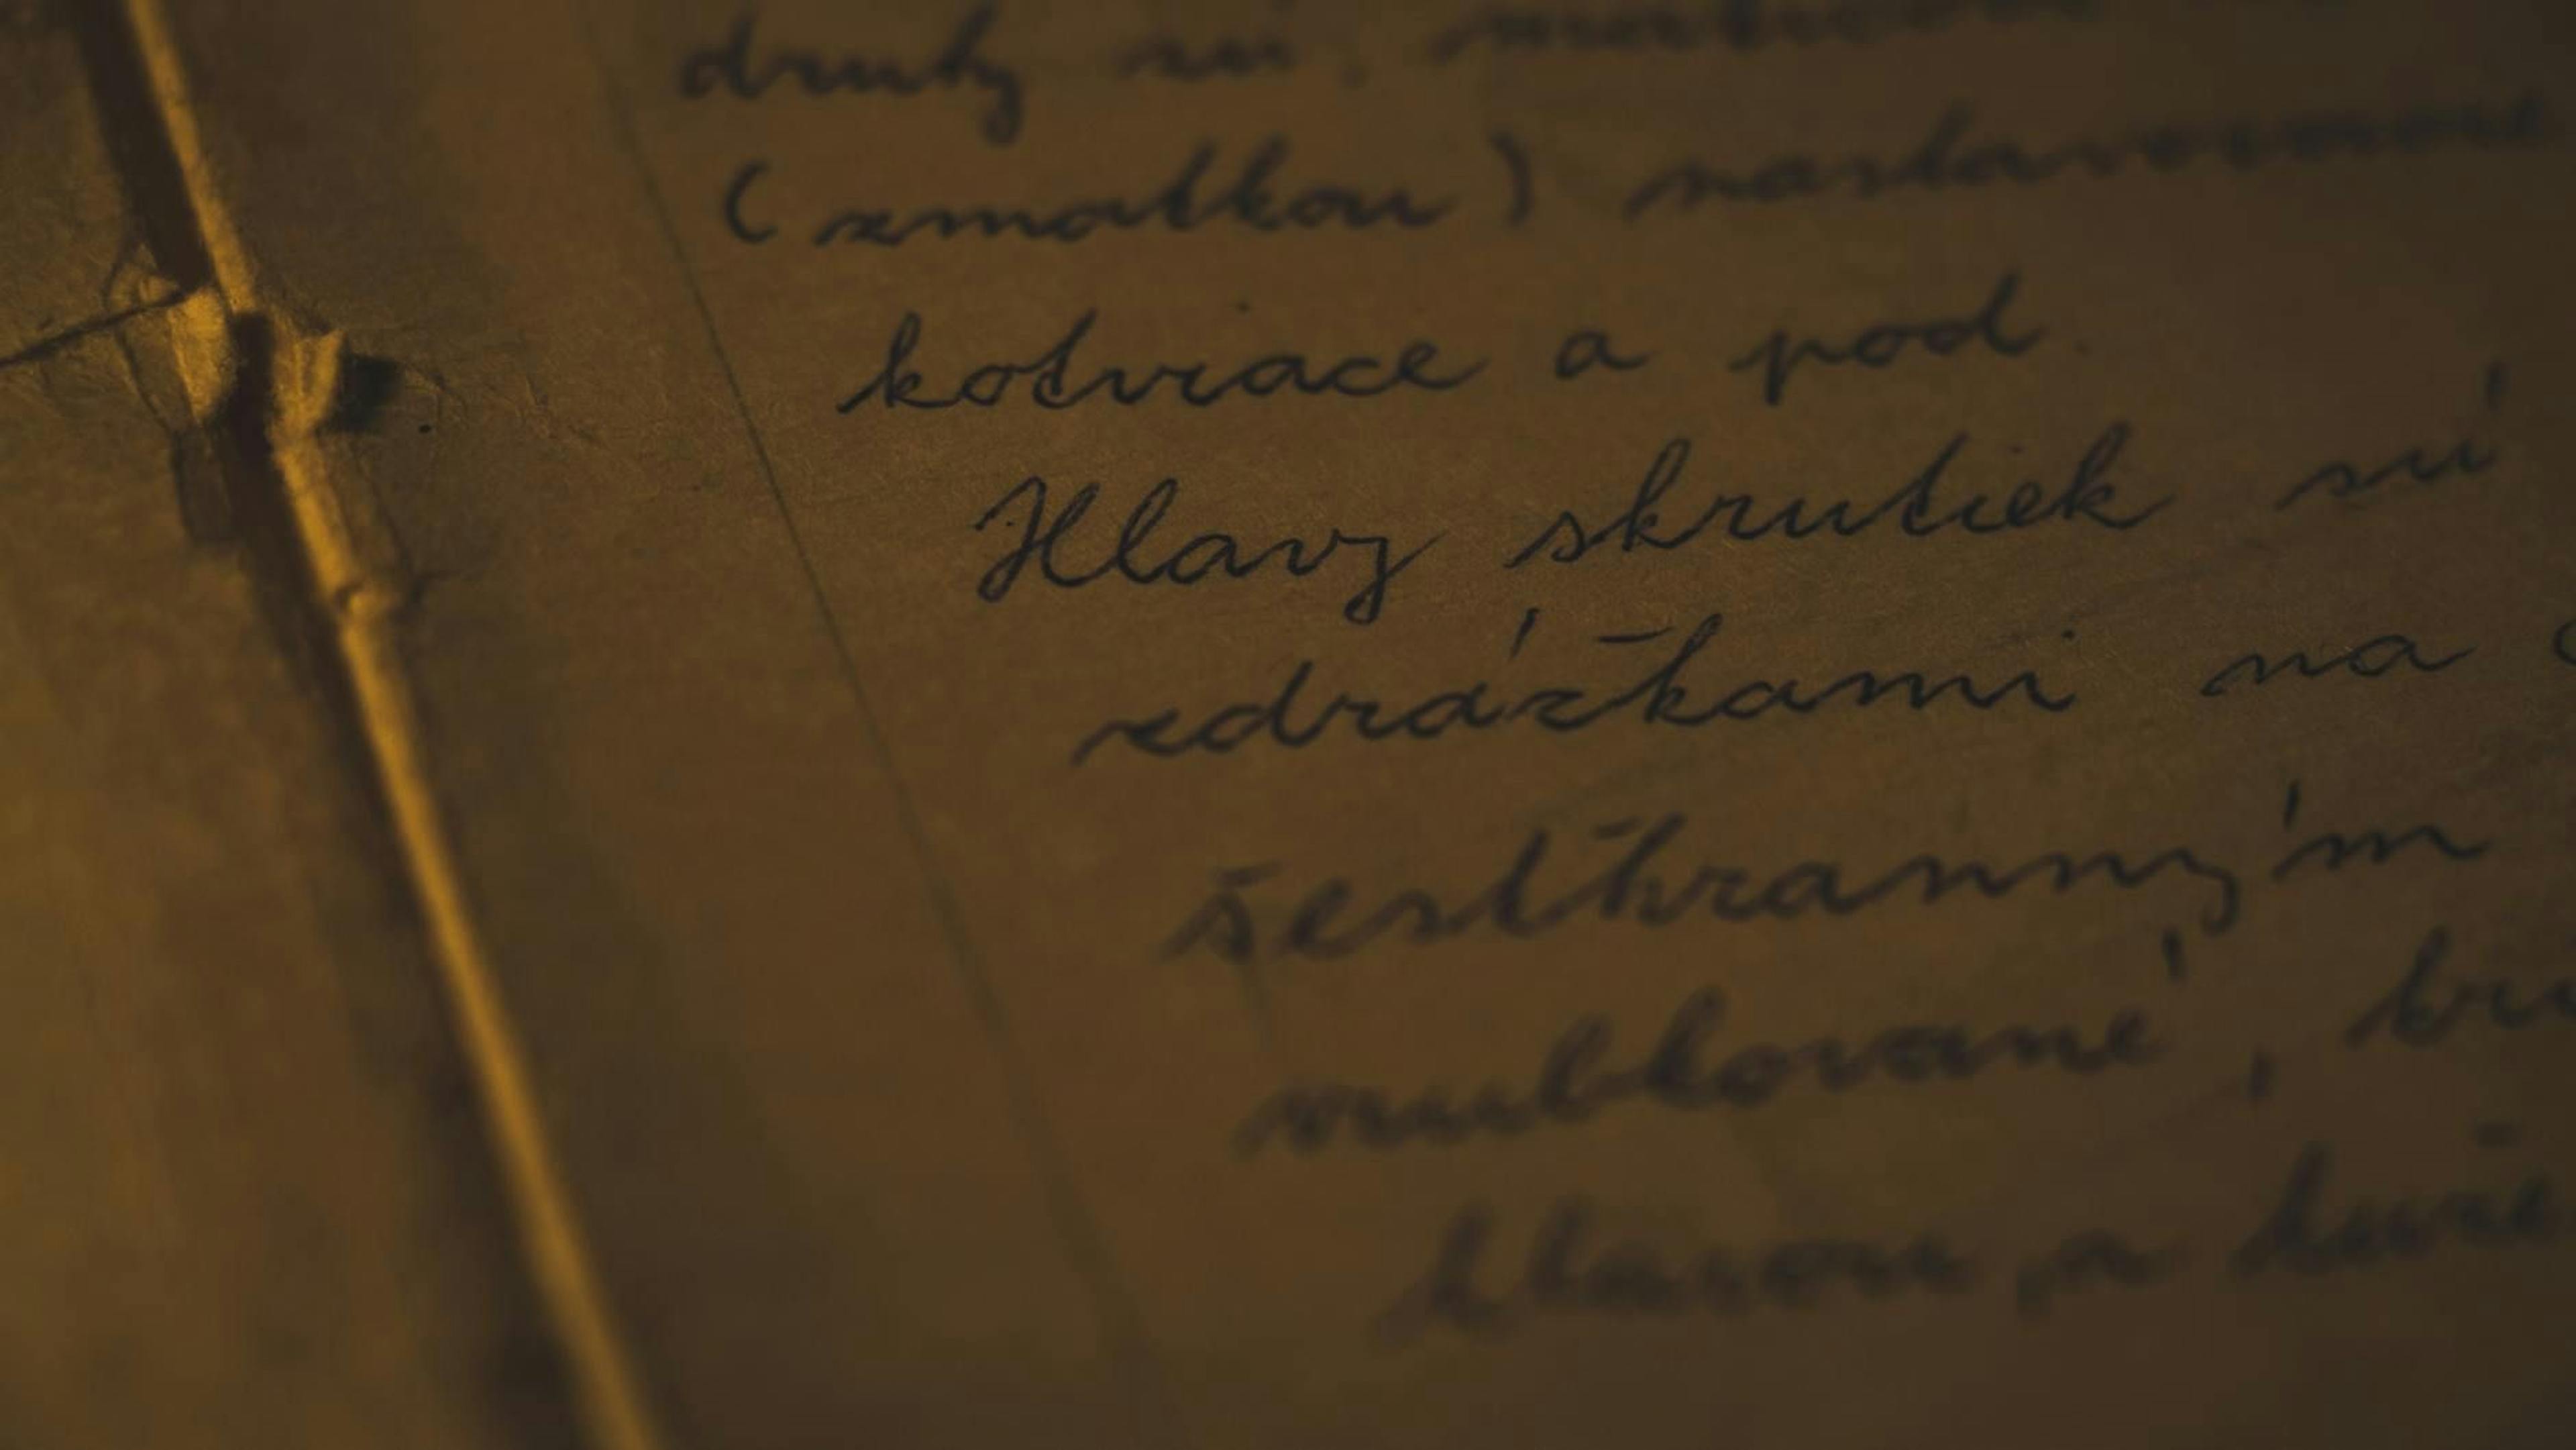 druhy sú:
(zmatkou) nastavovacie
kotviace a pod.
Hlavy skrutiek sú
zdrážkami na
šesťhranným
vrubkované,
hlavou p